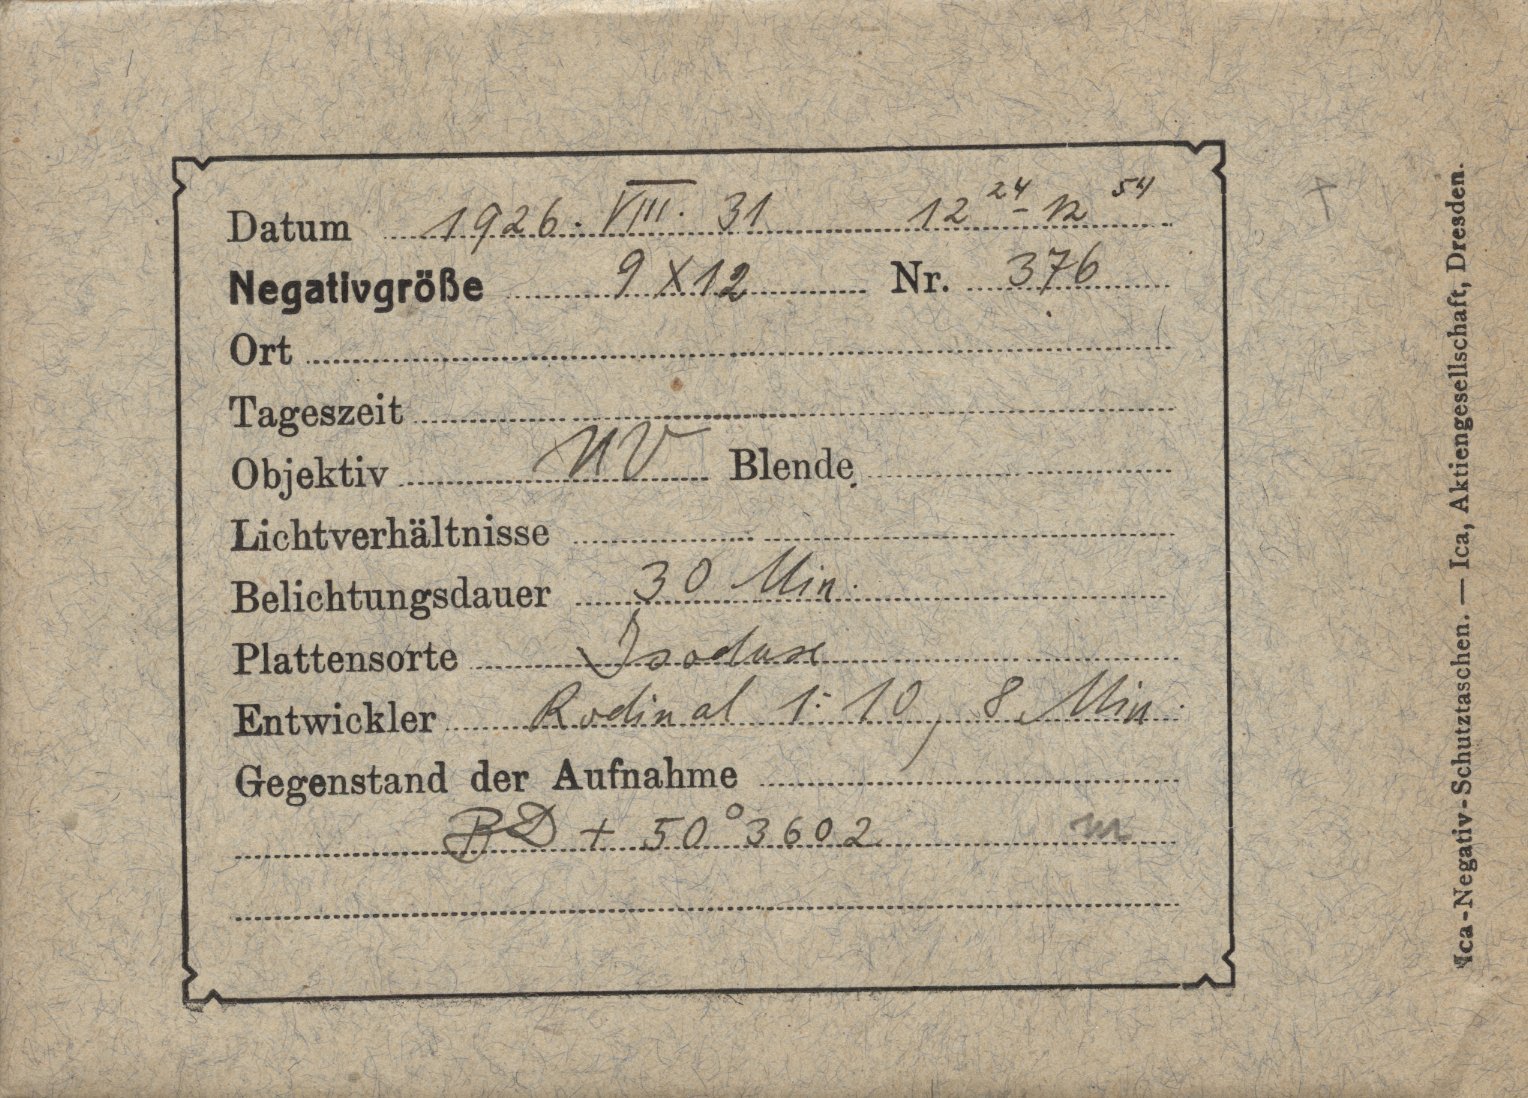 Datum 1926. VIII. 31 12 24 - 12 54
Negativgröße 9 X 12 Nr. 376
Ort
Tageszeit
Objektiv UV Blende
Lichtverhältnisse
Belichtungsdauer 30 Min.
Plattensorte
Entwickler Rodinal 1:10, 8 Min.
Gegenstand der Aufnahme
BD + 50° 3602 m
Ica-Negativ-Schutztaschen. — Ica, Aktiengesellschaft, Dresden.